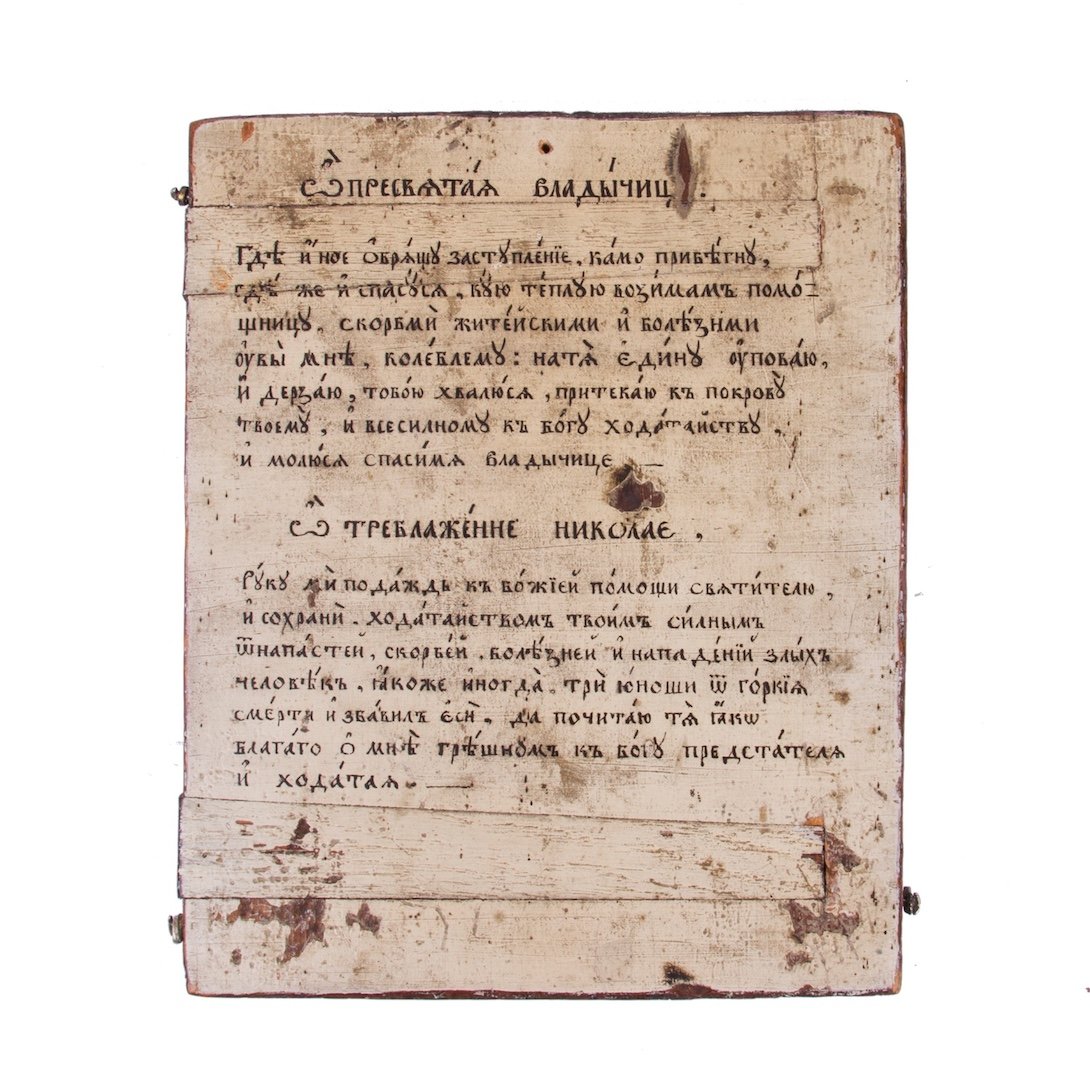 Ѽ пресвѧта́ѧ влады́чиц
Гдѣ̀ и҆́ное ѻ҆брѧ́щꙋ застꙋпле́нїе, ка́мо прибѣ́гнꙋ,
гдѣ́ же и҆ спасꙋ́сѧ, кꙋ́ю те́плꙋю воз̾има́мъ помо́-
щницꙋ, скорбмѝ жите́йскими и҆ болѣ́знми
ᲂу҆вы̀ мнѣ̀, коле́блемꙋ: на тѧ̀ є҆ди́нꙋ ᲂу҆пова́ю,
и҆ дерза́ю, тобо́ю хвалю́сѧ, притека́ю къ покро́вꙋ
твоемꙋ̀, и҆ всеси́лномꙋ къ бо́гꙋ хода́тайствꙋ,
и҆ молю́сѧ спаси́мѧ влады́чице —
Ѽ треблаже́нне николае,
Рꙋ́кꙋ мѝ пода́ждь къ бо́жїей по́мощи свѧти́телю,
и҆ сохранѝ. хода́тайствомъ твои́мъ си́лнымъ
ѿ напа́стей, скорбе́й, болѣ́зней и҆ нападе́нїй злы́хъ
человѣ́къ, ꙗ҆́коже и҆ногда̀, трѝ ю҆́ноши ѿ го́ркїѧ
сме́рти и҆зба́вилъ є҆сѝ, да почита́ю тѧ̀ ꙗ҆́кѡ
блага́го ѻ҆ мнѣ̀ грѣ́шномъ къ бо́гꙋ предста́телѧ
и҆ хода́таѧ. —